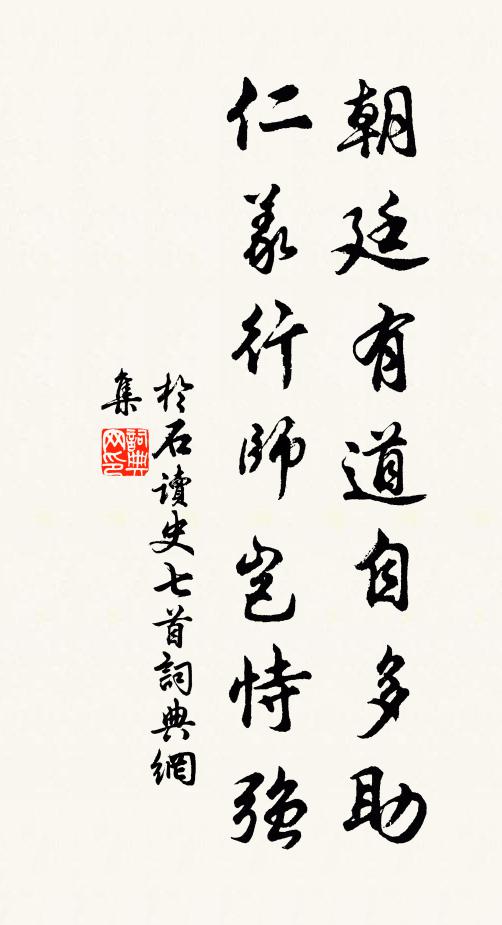 朝廷有道自多助
仁義行師豈恃強
於石讀史七首詞典網
集
詞典网印